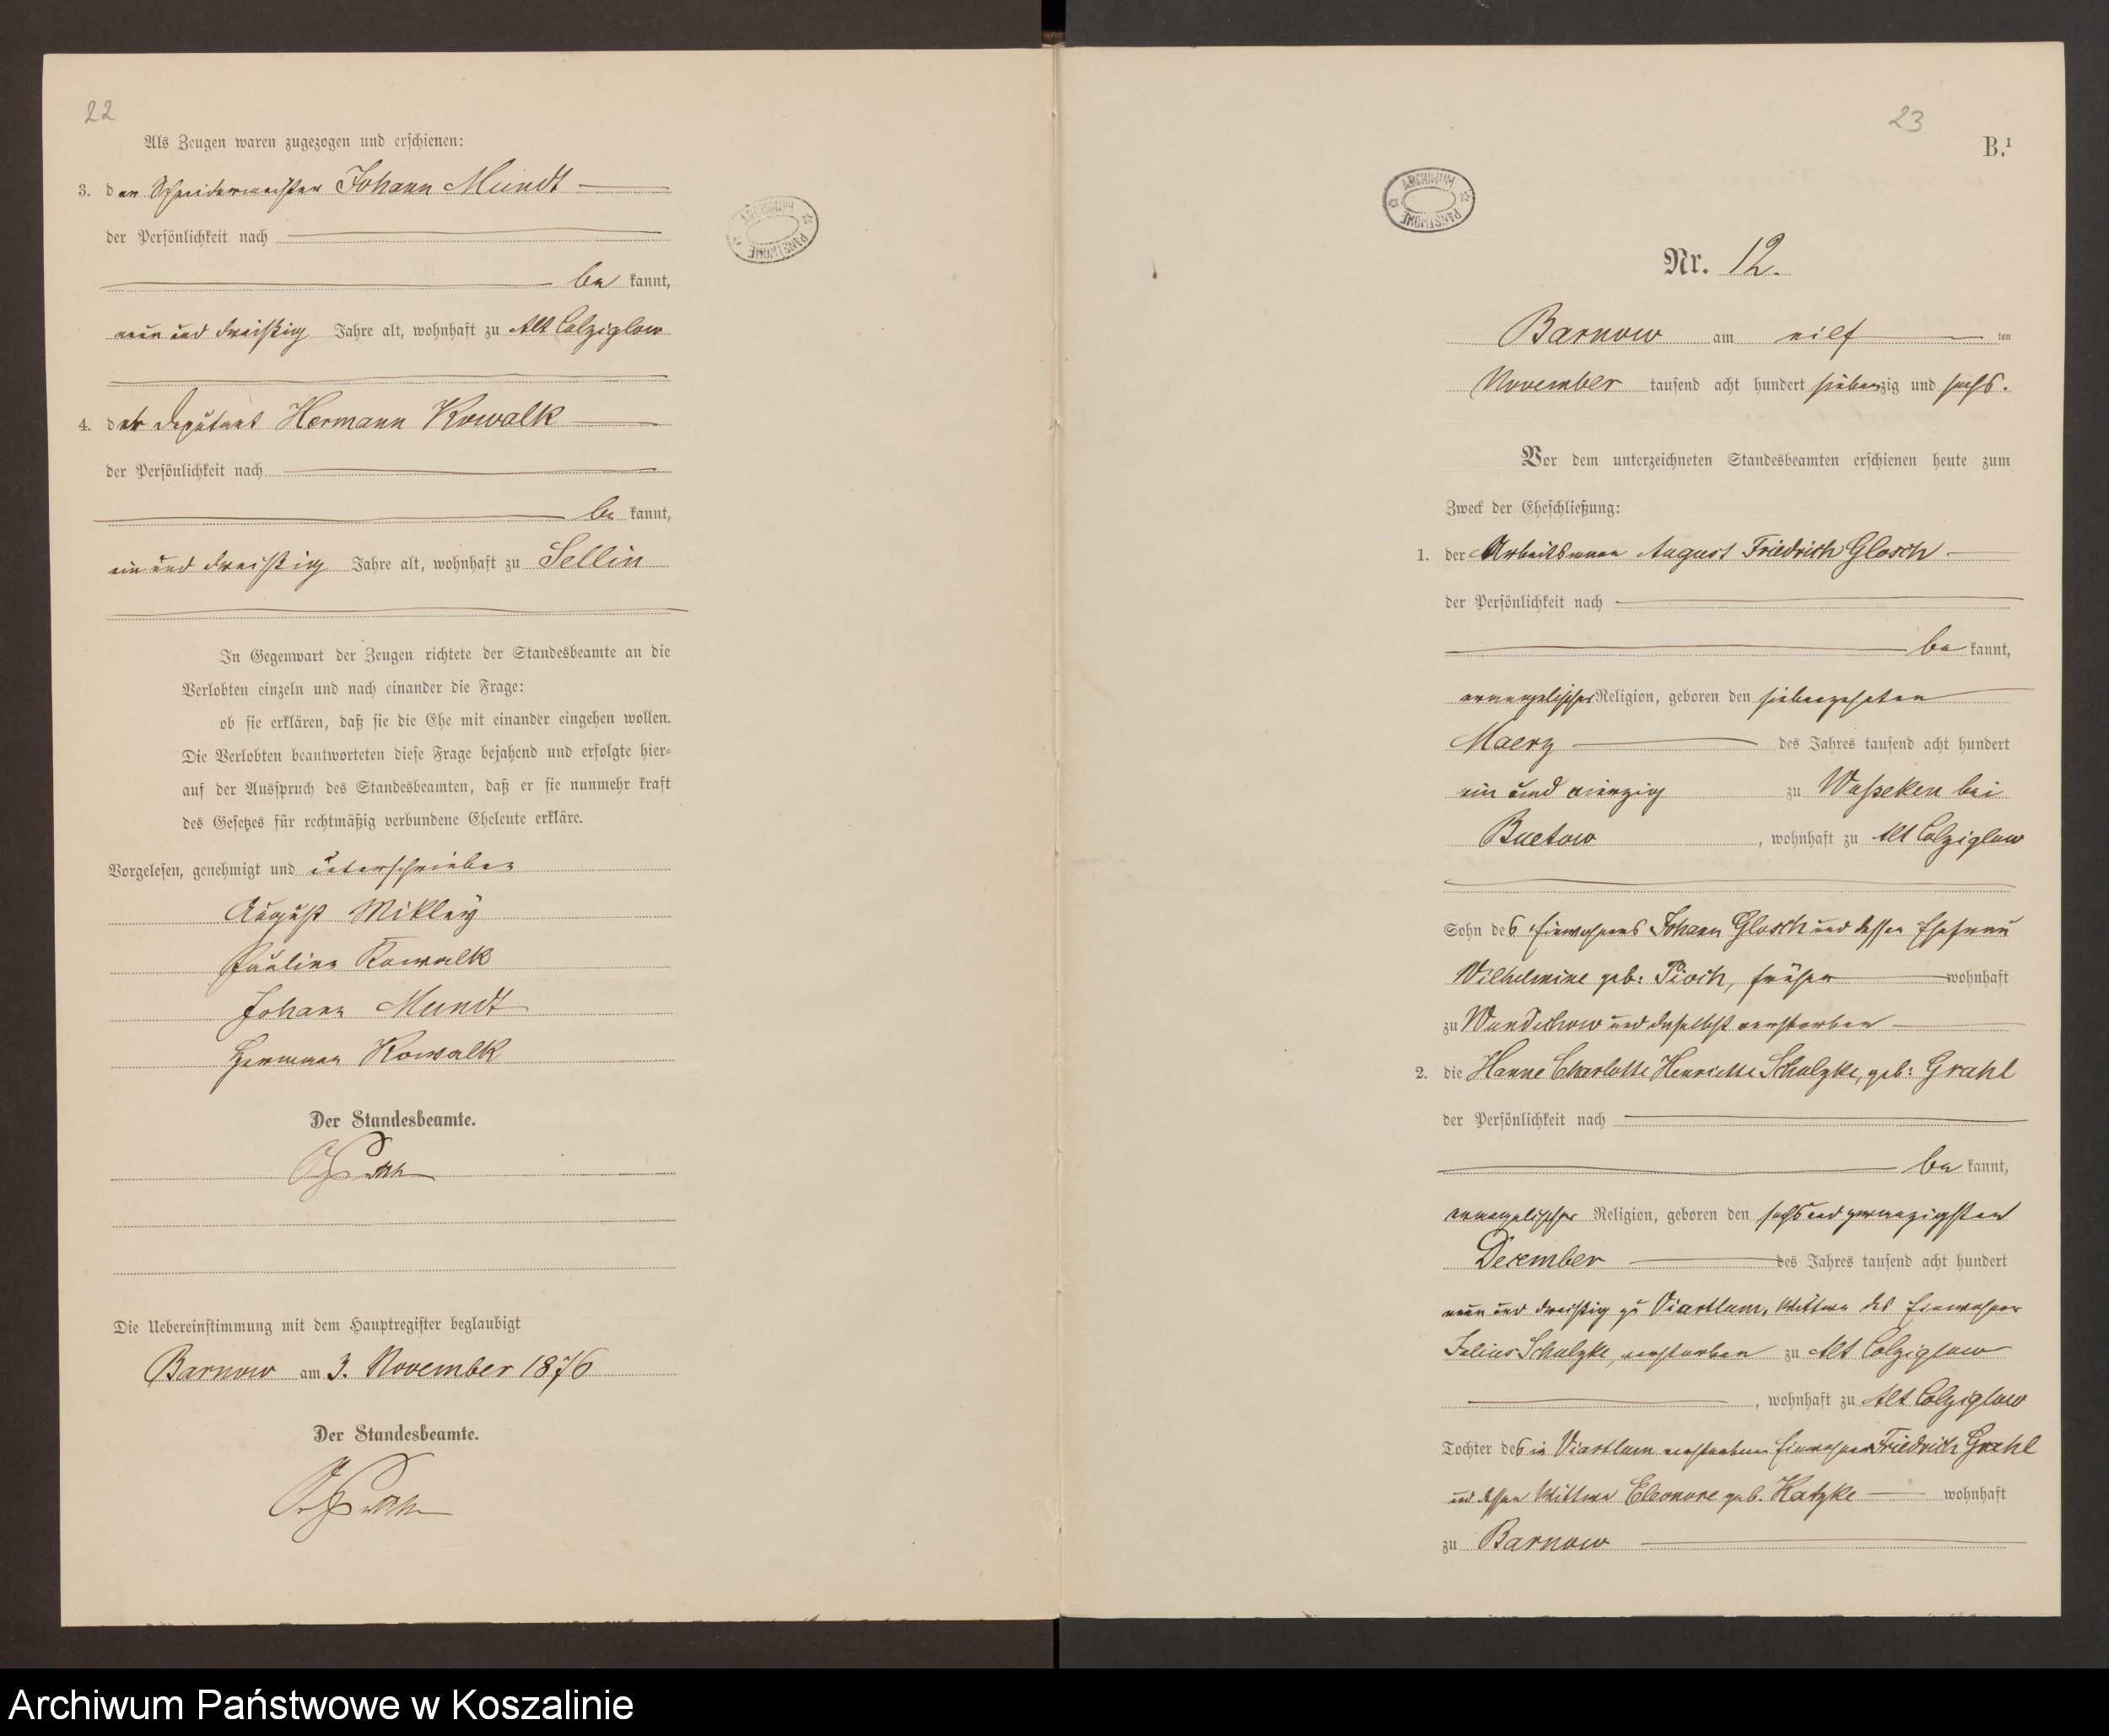 22
Als Zeugen waren zugezogen und erschienen:
3. der Schneidermeister Johann Mundt
der Persönlichkeit nach
be kannt,
neun und dreißig Jahre alt, wohnhaft zu Alt Colziglow
4. der Deputant Hermann Kowalk
der Persönlichkeit nach
be kannt,
ein und dreißig Jahre alt, wohnhaft zu Sellin
In Gegenwart der Zeugen richtete der Standesbeamte an die
Verlobten einzeln und nach einander die Frage:
ob sie erklären, daß sie die Ehe mit einander eingehen wollen.
Die Verlobten beantworteten diese Frage bejahend und erfolgte hier=
auf der Ausspruch des Standesbeamten, daß er sie nunmehr kraft
des Gesetzes für rechtmäßig verbundene Eheleute erkläre.
Vorgelesen, genehmigt und unterschrieben
August Mikley
Pauline Kowalk
Johann Mundt
Herman Kowalk
Der Standesbeamte.
Die Uebereinstimmung mit dem Hauptregister beglaubigt
Barnow am 3. November 1876
Der Standesbeamte.
23
B.¹
ARCHIWUM PAŃSTWOWE
Nr. 12.
Barnow am eilf ten
November tausend acht hundert siebenzig und sechs.
Vor dem unterzeichneten Standesbeamten erschienen heute zum
Zweck der Eheschließung:
1. der Arbeitsmann August Friedrich Glosch
der Persönlichkeit nach
be kannt,
evangelischer Religion, geboren den siebenzehnten
Maerz des Jahres tausend acht hundert
ein und vierzig zu Wusseken bei
Buetow, wohnhaft zu Alt Colziglow
Sohn des Einwohners Johann Glosch und dessen Ehefrau
Wilhelmine geb: Pioch, früher wohnhaft
zu Wundichow und daselbst verstorben
2. die Hanne Charlotte Henriette Schulzke, geb: Grahl
der Persönlichkeit nach
be kannt,
evangelischer Religion, geboren den sechs und zwanzigsten
December des Jahres tausend acht hundert
neun und dreißig zu Viartlum, Wittwe des Einwohner
Julius Schulzke, verstorben zu Alt Colziglow
, wohnhaft zu Alt Colziglow
Tochter des in Viartlum verstorbenen Einwohners Friedrich Grahl
und dessen Wittwe Eleonore geb. Katzke wohnhaft
zu Barnow
Archiwum Państwowe w Koszalinie